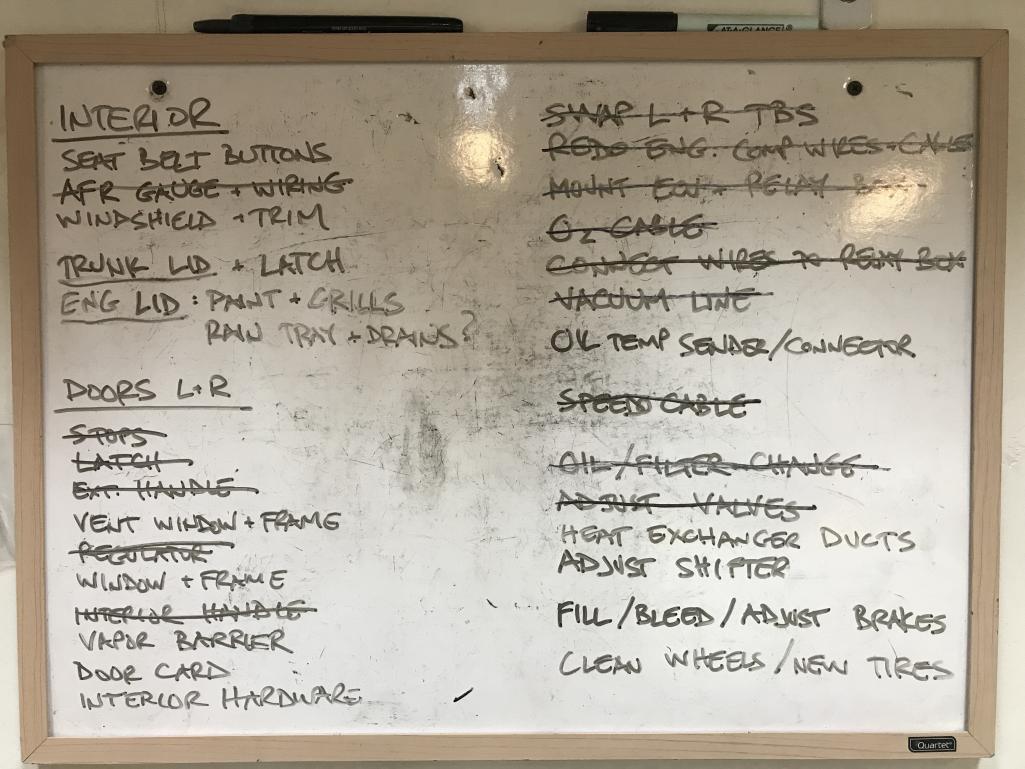 AT-A-GLANCE®
INTERIOR
SEAT BELT BUTTONS
AFR GAUGE + WIRING
WINDSHIELD + TRIM
TRUNK LID + LATCH
ENG LID : PAINT + GRILLS
RAIN TRAY + DRAINS?
DOORS L+R
STOPS
LATCH
EXT. HANDLE
VENT WINDOW + FRAME
REGULATOR
WINDOW + FRAME
INTERIOR HANDLE
VAPOR BARRIER
DOOR CARD
INTERIOR HARDWARE
SWAP L+R TBS
REDO ENG. COMP WIRES + CABLES
MOUNT ECU + RELAY BOX
O2 CABLE
CONNECT WIRES TO RELAY BOX
VACUUM LINE
OIL TEMP SENDER/CONNECTOR
SPEEDO CABLE
OIL/FILTER CHANGE
ADJUST VALVES
HEAT EXCHANGER DUCTS
ADJUST SHIFTER
FILL/BLEED/ADJUST BRAKES
CLEAN WHEELS/NEW TIRES
Quartet